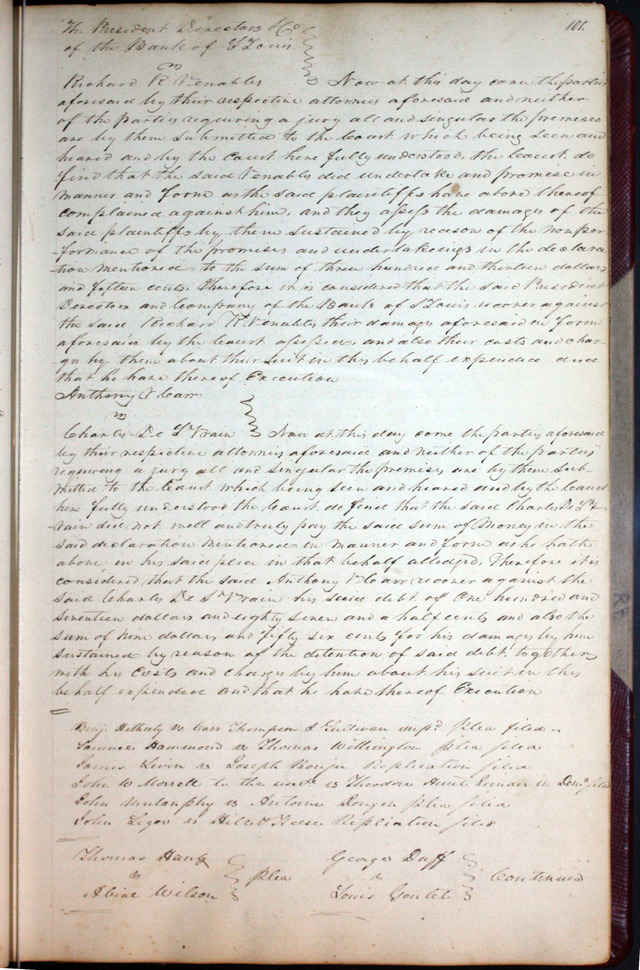 101.
The President Directors &Co
of the Bank of St Louis
vs
Richard R Venables Now at this day come the parties
aforesaid by their respective attornies aforesaid and neither
of the parties requiring a jury all and singular the premises
are by them submitted to the Court which being seen and
heard and by the Court here fully understood, the Court do
find that the said Venables did undertake and promise in
manner and form as the said plaintiffs have above thereof
complained against him, and they assess the damages of the
said plaintiffs by them sustained by reason of the nonper
formance of the promises and undertakings in the declara
tion mentioned to the sum of three hundred and thirteen dollars
and fifteen cents. Therefore it is considered that the said President
Directors and Company of the Bank of St Louis recover against
the said Richard R Venables their damages aforesaid in form
aforesaid by the Court assessed and also their costs and char-
ges by them about their suit in this behalf expended and
that he have thereof Execution
Anthony V Carr
vs
Charles De St Vrain Now at this day come the parties aforesaid
by their respective attornies aforesaid and neither of the parties
requiring a jury all and singular the premises are by them sub-
mitted to the Court which being seen and heard and by the Court
here fully understood the Court do find that the said Charles De St V
rain did not well and truly pay the said sum of Money in the
said declaration mentioned in manner and form as he hath
above in his said plea in that behalf alledged, Therefore it is
considered that the said Anthony V Carr recover against the
said Charles De St Vrain his said debt of One hundred and
seventeen dollars and eighty seven and a half cents and also the
sum of nine dollars and fifty six cents for his damages by him
sustained by reason of the detention of said debt, together
with his Costs and charges by him about his suit in this
behalf expended and that he have thereof Execution
Benj. vs Carr Thompson & plea filed
Hammond vs Thomas Withington plea filed
James Levin vs Joseph Replication filed
John W Morrell to the use vs Theodore Hunt in filed
John Mulanphy vs Antoine Dongon plea filed
John Ligov vs Hill & Keese Replication filed
Thomas Hanly George Duff
vs plea vs Continued
Abiae Wilson Louis Goulet